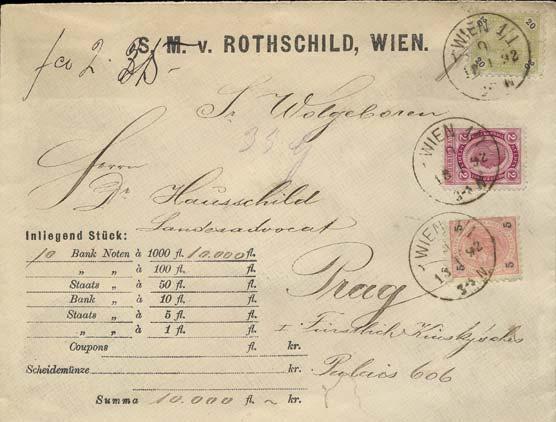 S. M. v. ROTHSCHILD, WIEN.
Sr Wolgeboren
Herrn
Dr Hausschild
Landesadvocat
Prag
Fürstlich Kinsky'sches
Palais 606
Inliegend Stück:
10 Bank Noten à 1000 fl. 10.000 fl.
„ „ à 100 fl. fl.
Staats „ à 50 fl. fl.
Bank „ à 10 fl. fl.
Staats „ à 5 fl. fl.
„ „ à 1 fl. fl.
Coupons fl. kr.
Scheidemünze fl. kr.
Summa 10.000 fl. ~ kr.
20 20
20 20
WIEN 1/1
92
2 2
2 2
WIEN 1/1
92
3-3 N
5 5
5 5
WIEN 1/1
92
3-3 N